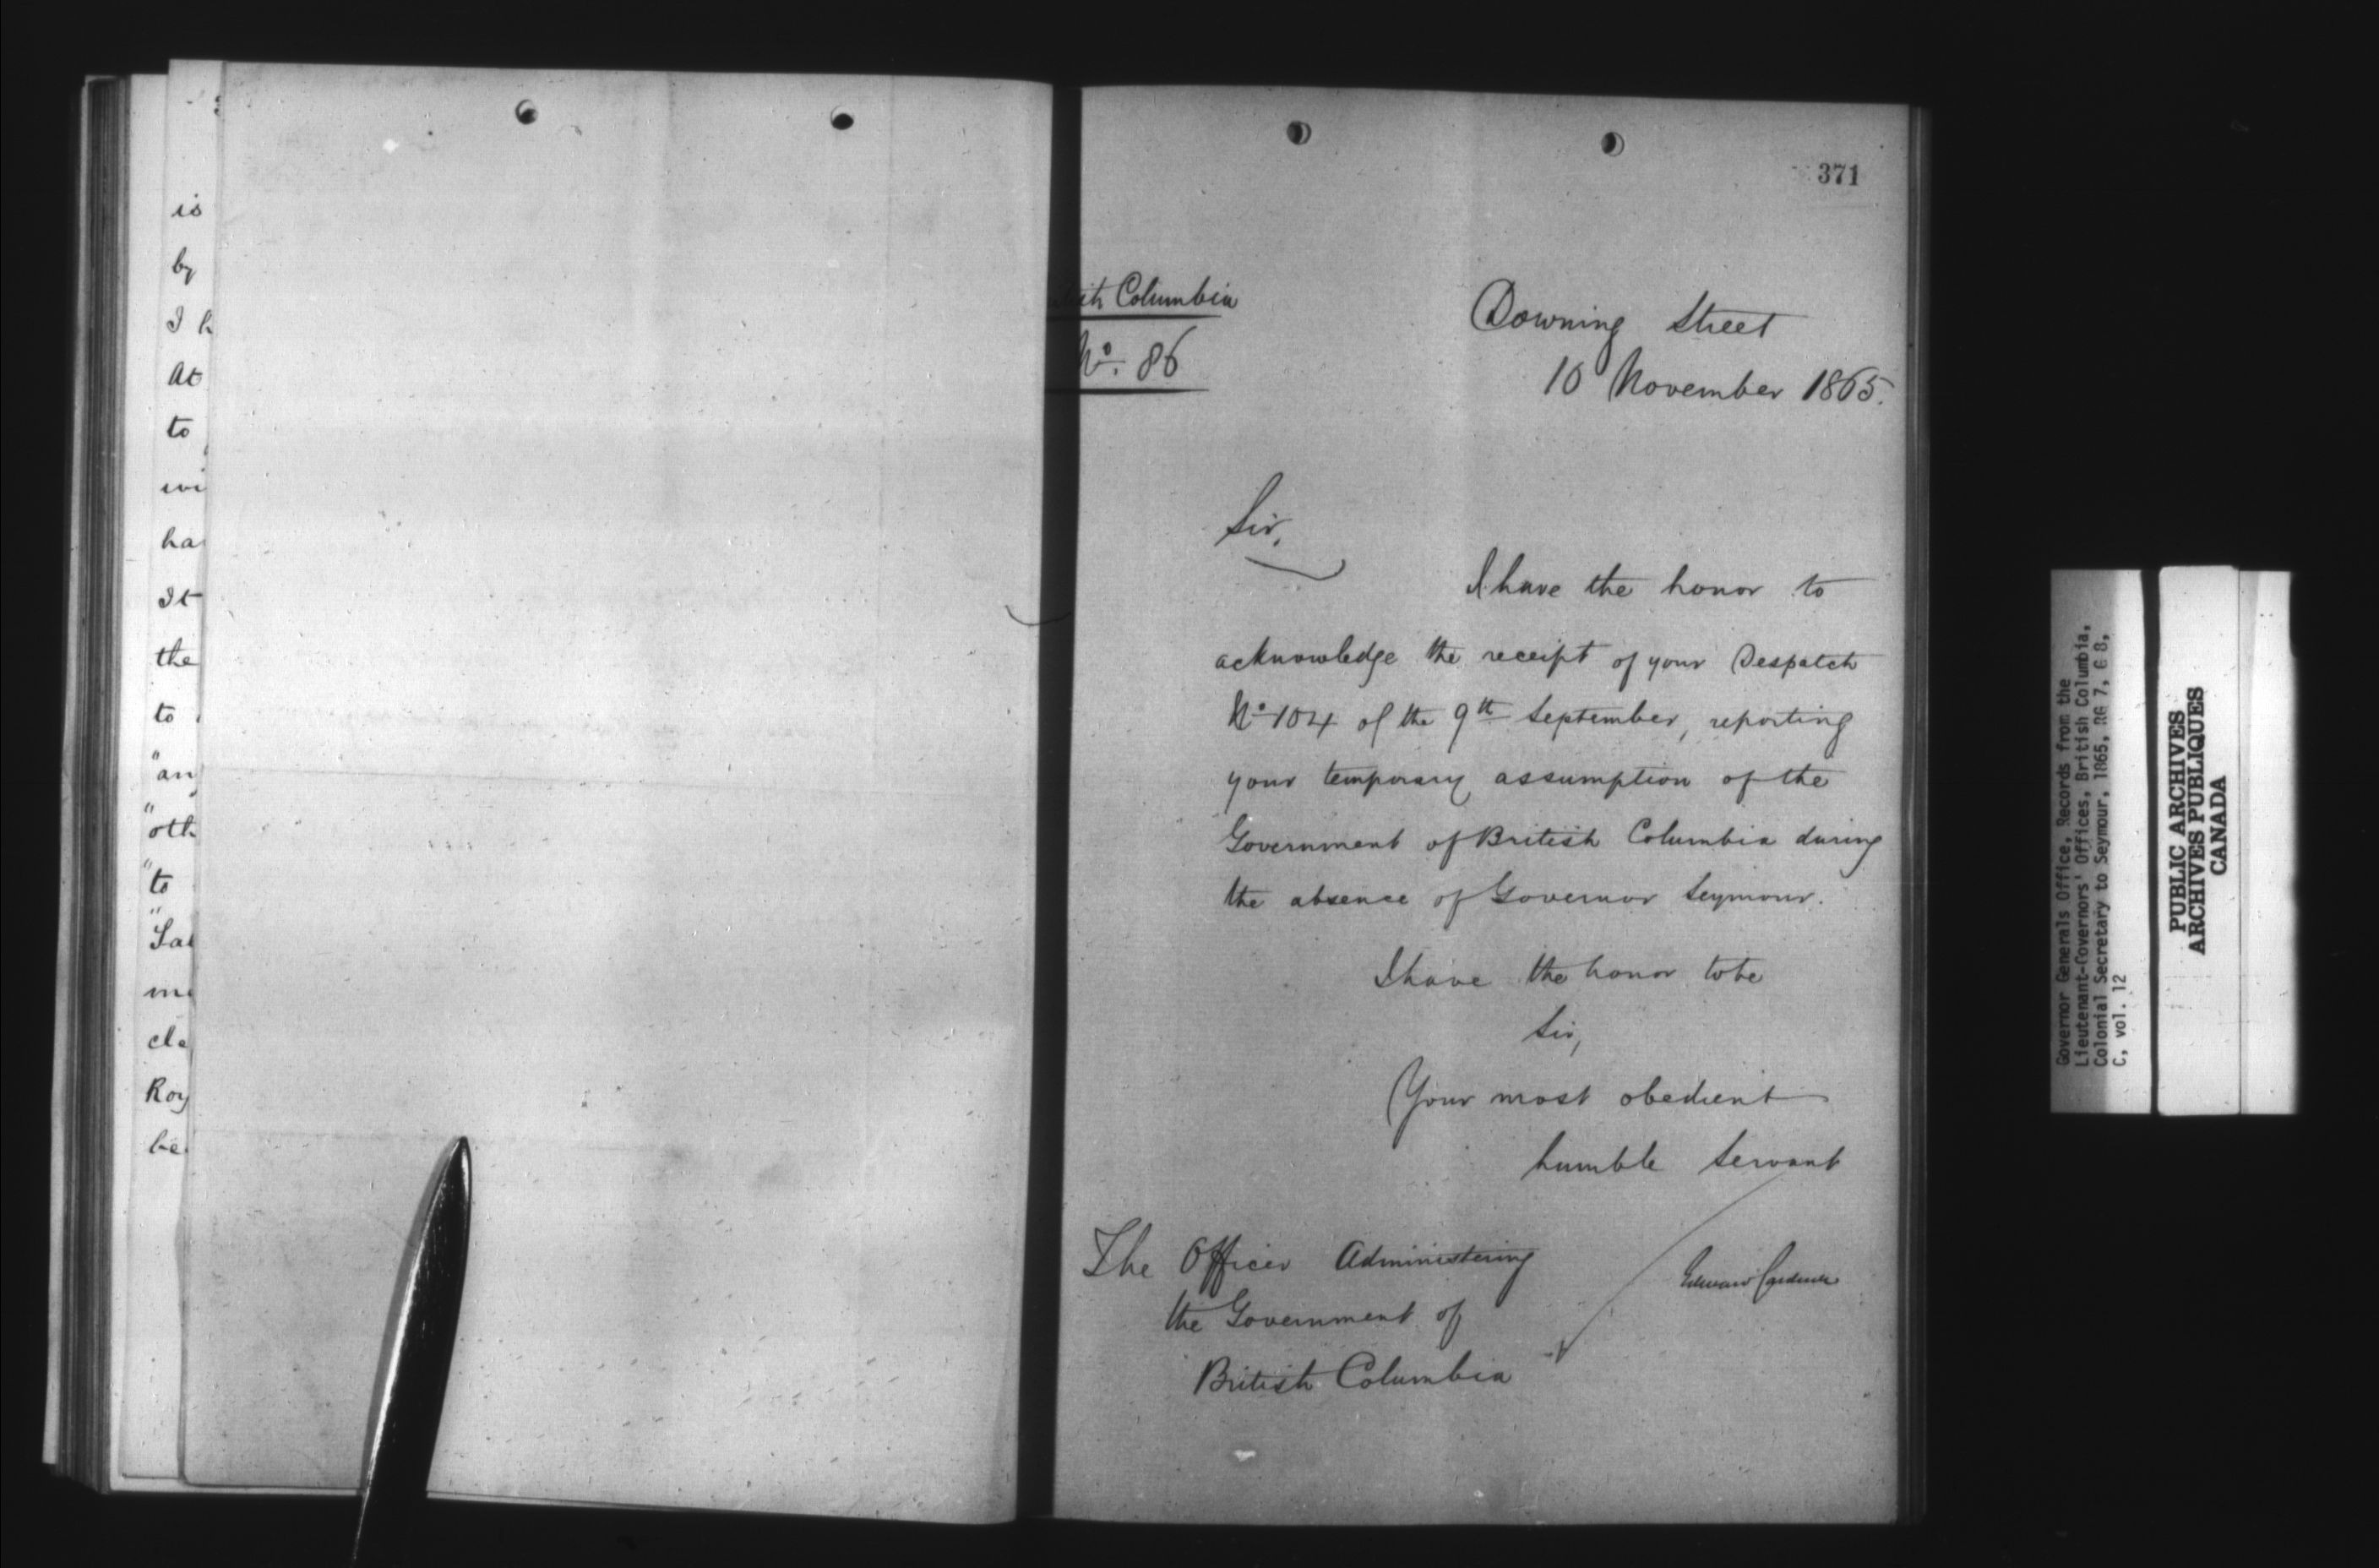 is
by
I h
At
to
wi
ha
It
the
to
"an
"oth
"to
"Sal
me
cle
Roy
be
371
itish Columbia
No. 86
Downing Street
10 November 1865.
Sir,
I have the honor to
acknowledge the receipt of your Despatch
No 104 of the 9th September, reporting
your temporary assumption of the
Government of British Columbia during
the absence of Governor Seymour.
I have the honor to be
Sir,
Your most obedient
humble Servant
Edward Cardwell
The Officer Administering
the Government of
British Columbia
Governor Generals Office, Records from the
Lieutenant-Governors' Offices, British Columbia,
Colonial Secretary to Seymour, 1865, RG 7, G 8,
C, vol. 12
PUBLIC ARCHIVES
ARCHIVES PUBLIQUES
CANADA